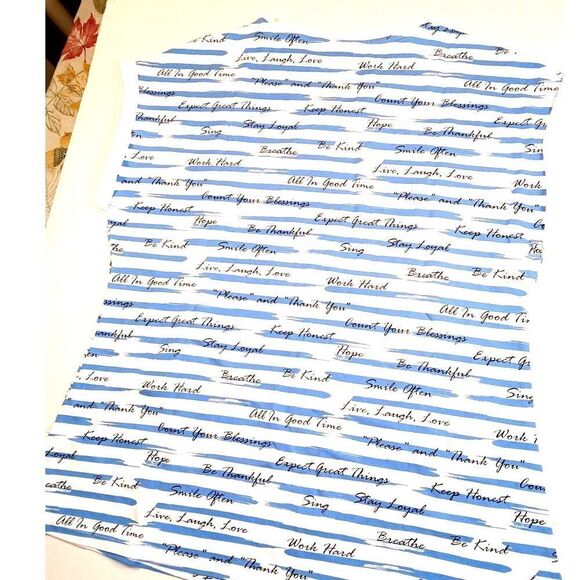 Be Kind Smile Often
Live, Laugh, Love Work Hard Breathe Be
All In Good Time "Please" and "Thank You" All In Good Time
Blessings Expect Great Things Keep Honest Count Your Blessings
Thankful Sing Stay Loyal Hope Be Thankful Expect
Love Work Hard Breathe Be Kind Smile Often Sin
and "Thank You" All In Good Time Live, Laugh, Love Work
Keep Honest Count Your Blessings "Please" and "Thank You" Co
yal Hope Be Thankful Expect Great Things Keep Honest
the Be Kind Smile Often Sing Stay Loyal Hop
Live, Laugh, Love Work Hard Breathe Be Kind
All In Good Time "Please" and "Thank You" All In Good Tim
essings Expect Great Things Keep Honest Count Your Blessings
ankful Sing Stay Loyal Hope Be Thankful Expect G
ten Breathe Be Kind Smile Often Sing
, Love Work Hard All In Good Time Live, Laugh, Love Work
" and "Thank You" Count Your Blessings "Please" and "Thank You"
Keep Honest Hope Expect Great Things Count
Loyal Be Thankful Sing Stay Loyal Keep Honest
eathe Be Kind Smile Often Breathe Be Kind
All In Good Time Live, Laugh, Love Work Hard
"Please" and "Thank You"